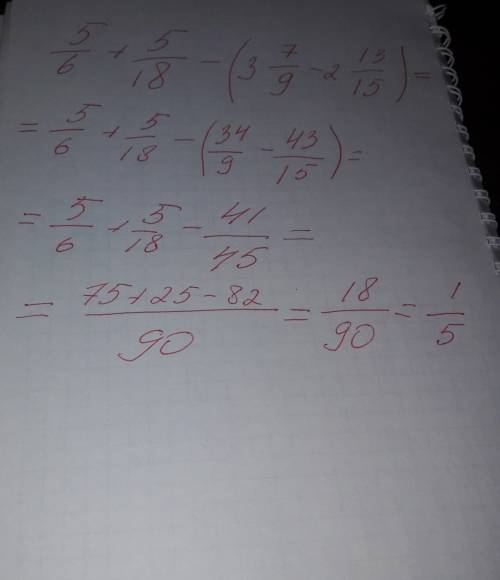 5/6 + 5/18 - (3 7/9 - 2 13/15) =
= 5/6 + 5/18 - (34/9 - 43/15) =
= 5/6 + 5/18 - 41/45 =
= 75+25-82/90 = 18/90 = 1/5